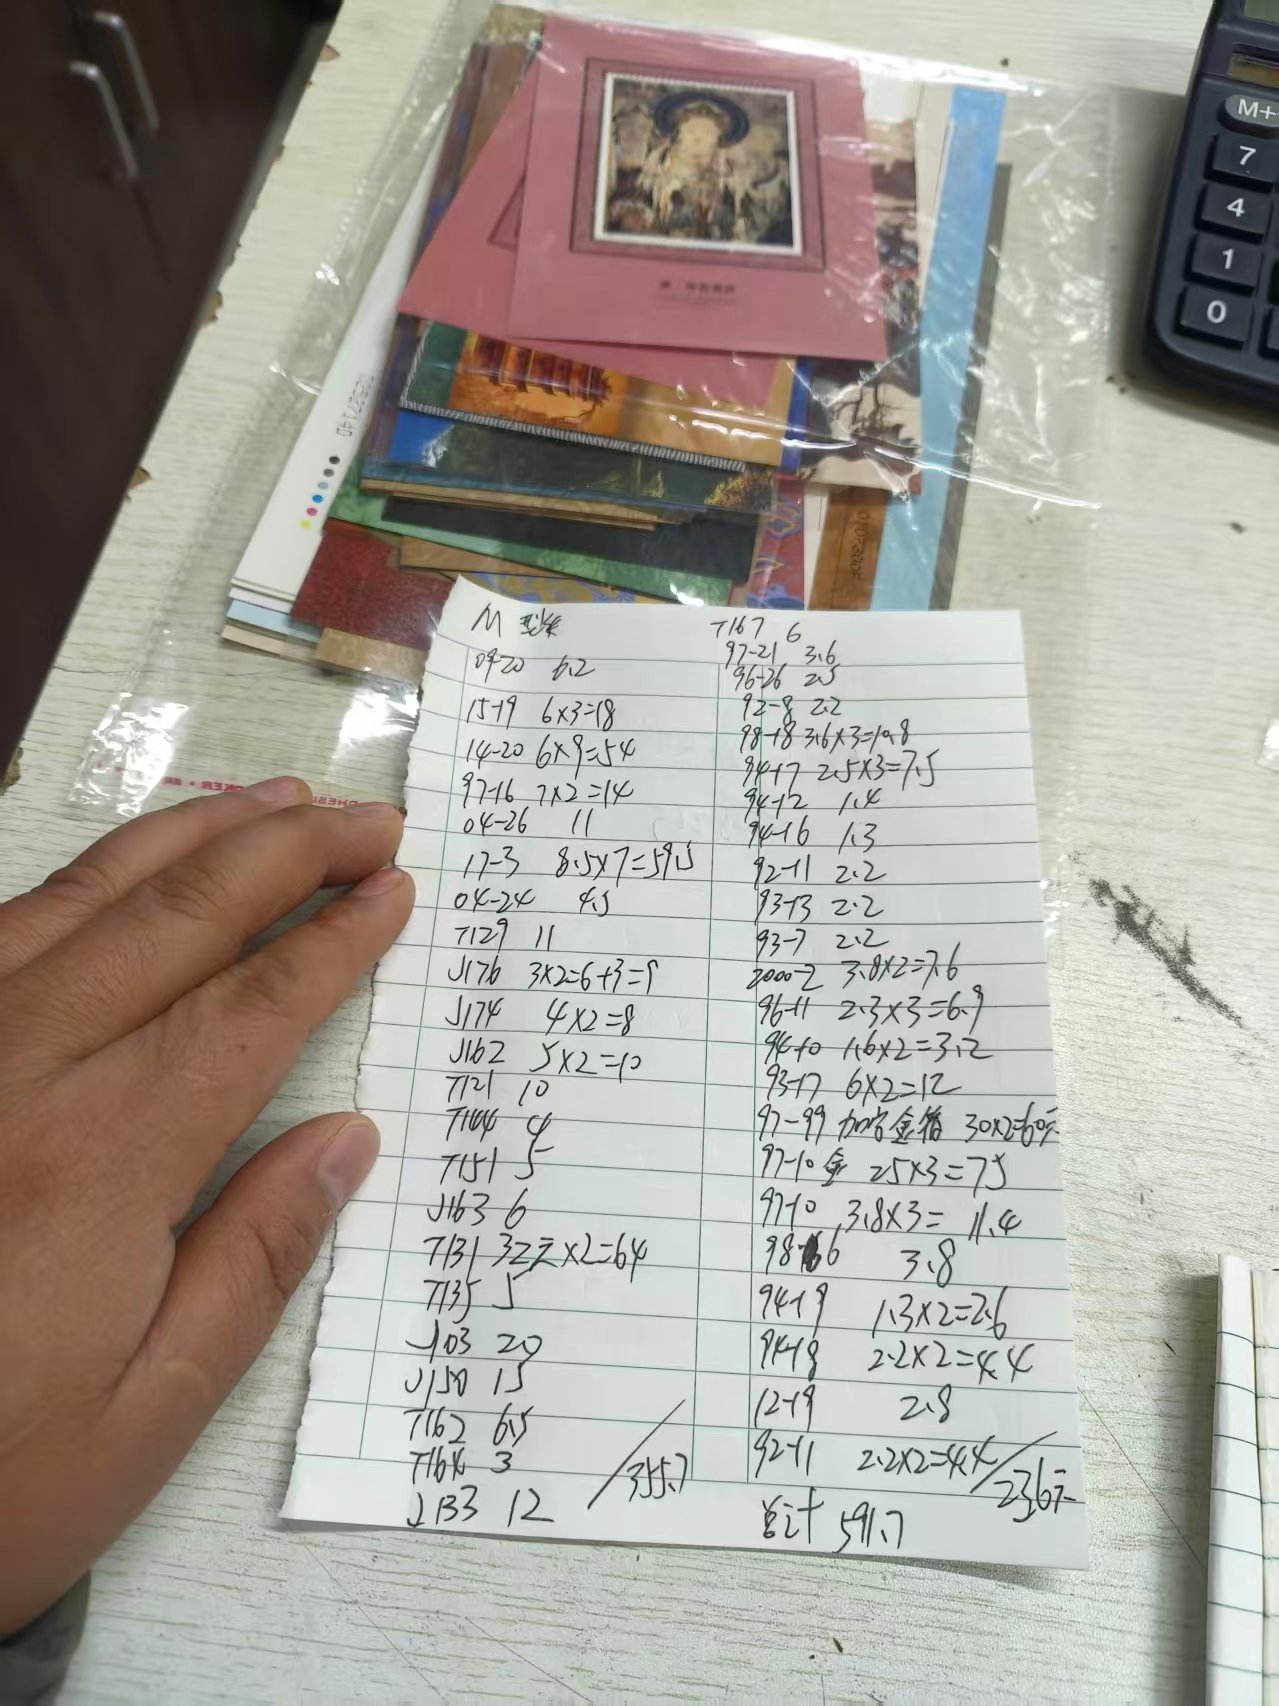 M 型张
09-20 6.2
15-19 6×3=18
14-20 6×9=54
97-16 7×2=14
04-26 11
17-3 8.5×7=59.5
04-24 4.5
T129 11
J176 3×2=6+3=9
J174 4×2=8
J162 5×2=10
T121 10
T144 4
T151 5
J163 6
T131 32元×2=64
T135 5
J103 20
J150 15
T162 6.5
T164 3
J133 12
355.7
T167 6
97-21 3.6
96-26 2.5
92-8 2.2
98-18 3.6×3=10.8
94-17 2.5×3=7.5
94-12 1.4
94-16 1.3
92-11 2.2
93-13 2.2
93-7 2.2
2000-2 3.8×2=7.6
96-11 2.3×3=6.9
94-10 1.6×2=3.2
93-17 6×2=12
97-99 加字金箔 30×2=60元
97-10金 25×3=75
97-10 3.8×3= 11.4
98- 6 3.8
94-19 1.3×2=2.6
94-18 2.2×2=4.4
12-19 2.8
92-11 2.2×2=4.4
236元
总计 591.7
M+
7
4
1
0